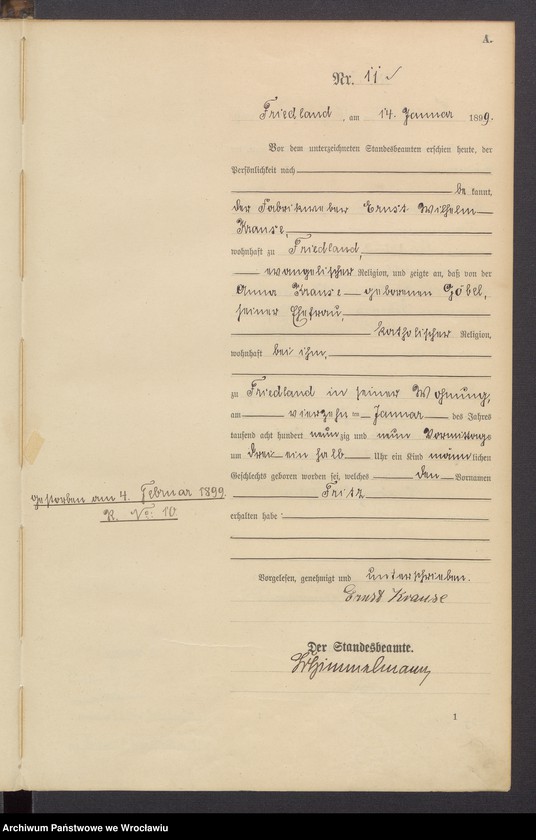 A.
Nr. 11
Friedland, am 14. Januar 1899.
Vor dem unterzeichneten Standesbeamten erschien heute, der
Persönlichkeit nach
be kannt,
der Fabrikweber Ernst Wilhelm
Krause,
wohnhaft zu Friedland,
evangelischer Religion, und zeigte an, daß von der
Anna Krause geborenen Göbel,
seiner Ehefrau,
katholischer Religion,
wohnhaft bei ihm,
zu Friedland in seiner Wohnung,
am vierzehn ten Januar des Jahres
tausend acht hundert neun zig und neun Vormittags
um drei ein halb Uhr ein Kind männ lichen
Geschlechts geboren worden sei, welches den Vornamen
Fritz
gestorben am 4. Februar 1899.
R. No: 10
erhalten habe
Vorgelesen, genehmigt und unterschrieben.
Ernst Krause
Der Standesbeamte.
Himmelmann
1
Archiwum Państwowe we Wrocławiu